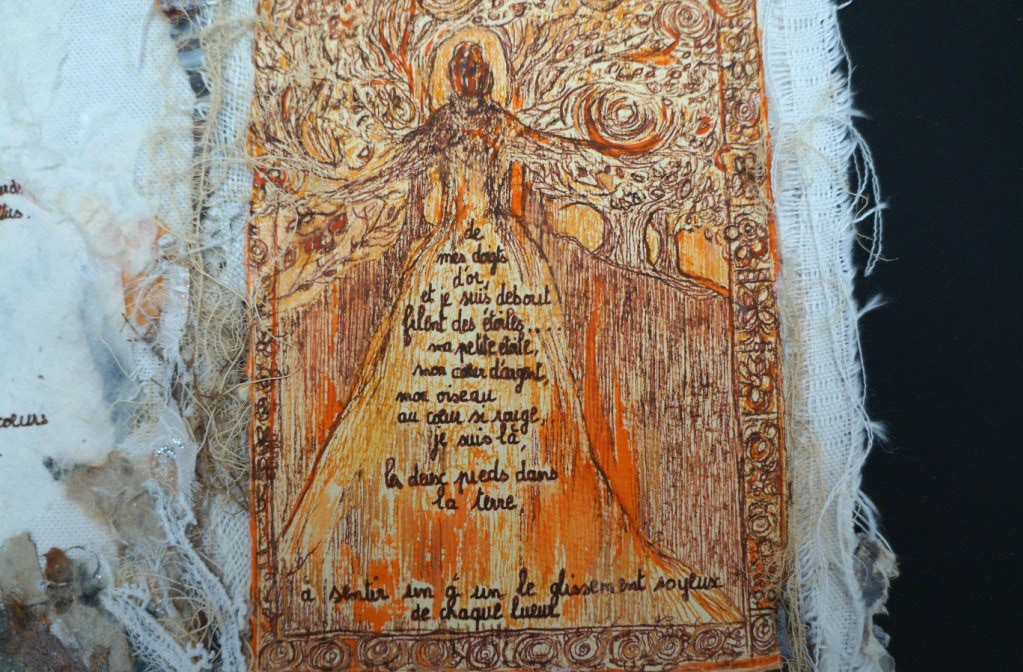 coeurs
de
mes doigts
d'or,
et je suis debout
filent des étoiles....
ma petite étoile,
mon cœur d'argent,
mon oiseau
au cœur si rouge,
je suis là
les deux pieds dans
la terre,
à sentir un à un le glissement soyeux
de chaque lueur